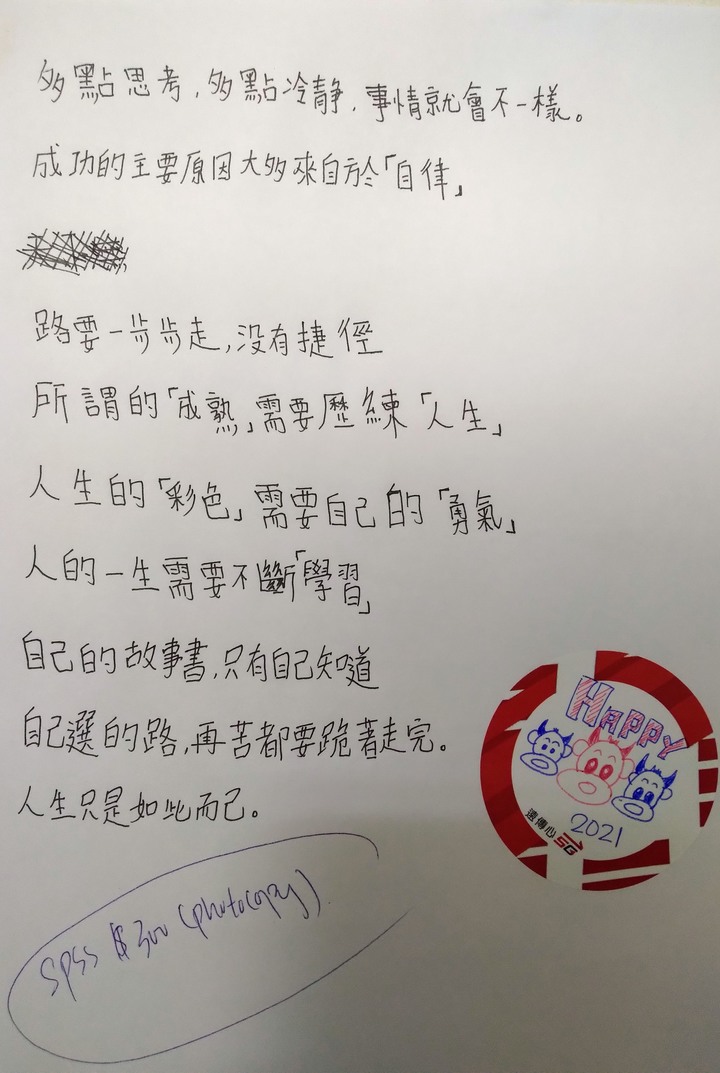 多點思考,多點冷靜,事情就會不一樣。
成功的主要原因大多來自於「自律」
路要一步步走,没有捷徑
所謂的「成熟」需要歷練「人生」
人生的「彩色」需要自己的「勇氣」
人的一生需要不斷「學習」
自己的故事書,只有自己知道
自己選的路,再苦都要跪著走完。
人生只是如此而已。
HAPPY
2021
遠傳心5G
SPSS $300 (photocopy)